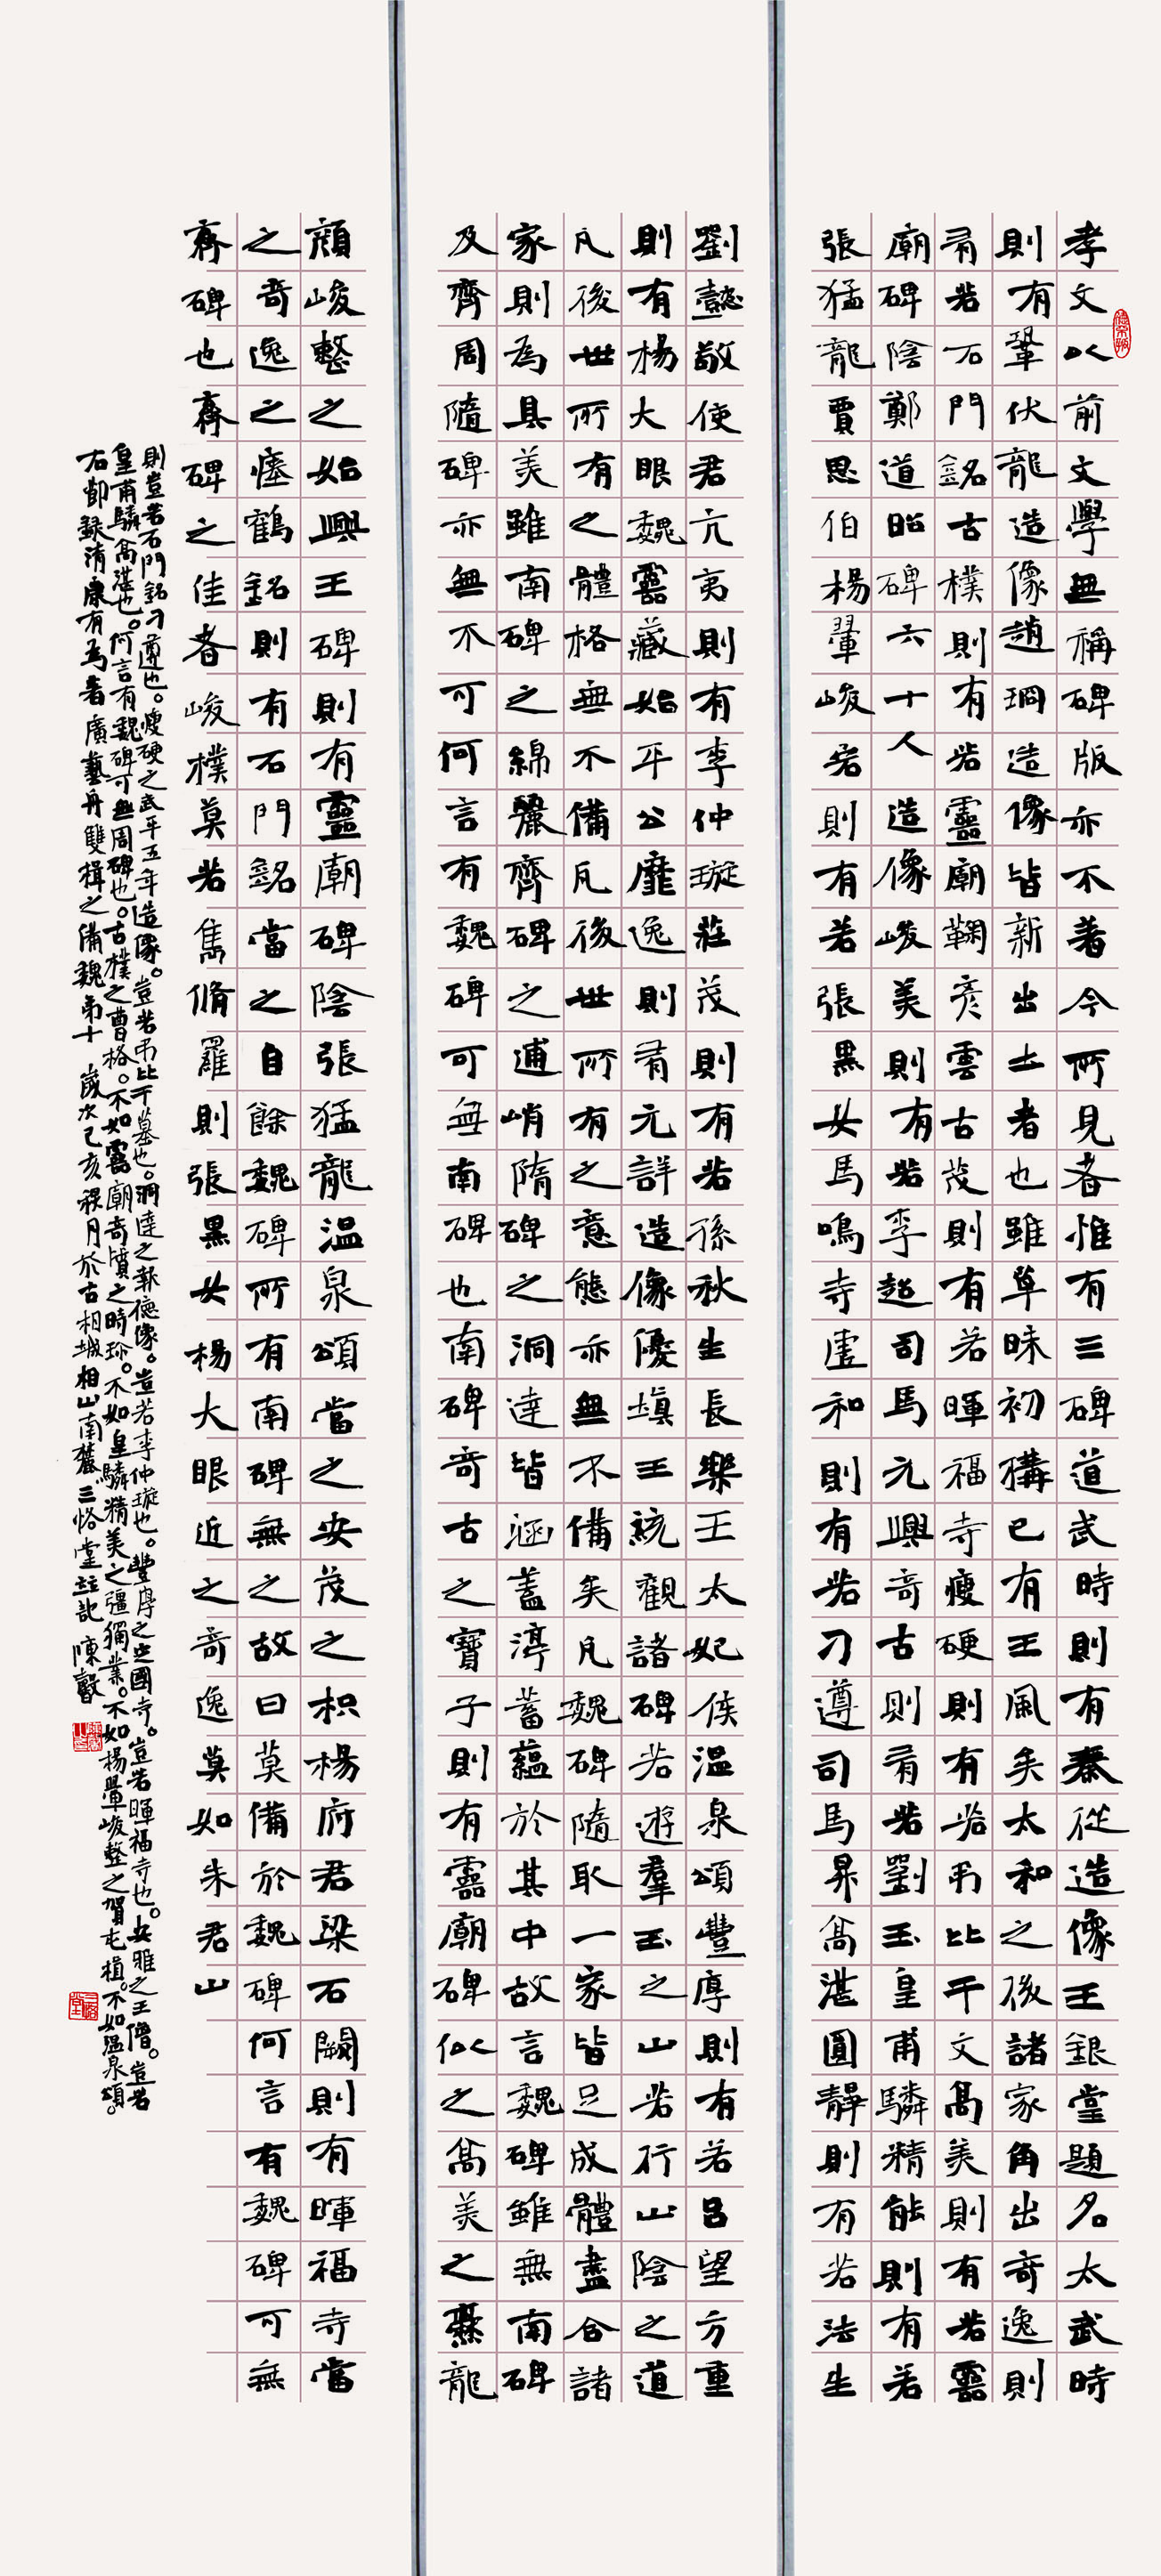 孝文以前文學無稱碑版亦不著今所見者惟有三碑道武時則有秦從造像王銀堂題名太武時
則有鞏伏龍造像趙琱造像皆新出土者也雖草昧初構已有王風矣太和之後諸家角出奇逸則
有若石門銘古樸則有若靈廟鞠彥雲古茂則有若暉福寺瘦硬則有若弔比干文高美則有若靈
廟碑陰鄭道昭碑六十人造像峻美則有若李超司馬元興奇古則有若劉玉皇甫驎精能則有若
張猛龍賈思伯楊翬峻宕則有若張黑女馬鳴寺虛和則有若刁遵司馬昇高湛圓靜則有若法生
劉懿敬使君亢夷則有李仲璇莊茂則有若孫秋生長樂王太妃侯溫泉頌豐厚則有若呂望方重
則有楊大眼魏靈藏始平公靡逸則有元詳造像優填王統觀諸碑若遊羣玉之山若行山陰之道
凡後世所有之體格無不備凡後世所有之意態亦無不備矣凡魏碑隨取一家皆足成體盡合諸
家則為具美雖南碑之綿麗齊碑之逋峭隋碑之洞達皆涵蓋渟蓄蘊於其中故言魏碑雖無南碑
及齊周隨碑亦無不可何言有魏碑可無南碑也南碑奇古之寶子則有靈廟碑似之高美之爨龍
顏峻整之始興王碑則有靈廟碑陰張猛龍溫泉頌當之安茂之枳楊府君梁石闕則有暉福寺當
之奇逸之瘞鶴銘則有石門銘當之自餘魏碑所有南碑無之故曰莫備於魏碑何言有魏碑可無
齊碑也齊碑之佳者峻樸莫若雋脩羅則張黑女楊大眼近之奇逸莫如朱君山
則豈若石門銘刁遵也。瘦硬之武平五年造像。豈若弔比干墓也。洞達之報德像。豈若李仲璇也。豐厚之定國寺。豈若暉福寺也。安雅之王僧。豈若
皇甫驎高湛也。何言有魏碑可無周碑也。古樸之曹恪。不如靈廟奇質之時珍。不如皇驎精美之彊獨業。不如楊翬峻整之賀屯植。不如溫泉頌。
右節錄清康有為著廣藝舟雙楫之備魏第十 歲次己亥秋月於古相城相山南麓三恪堂並記 陳毅